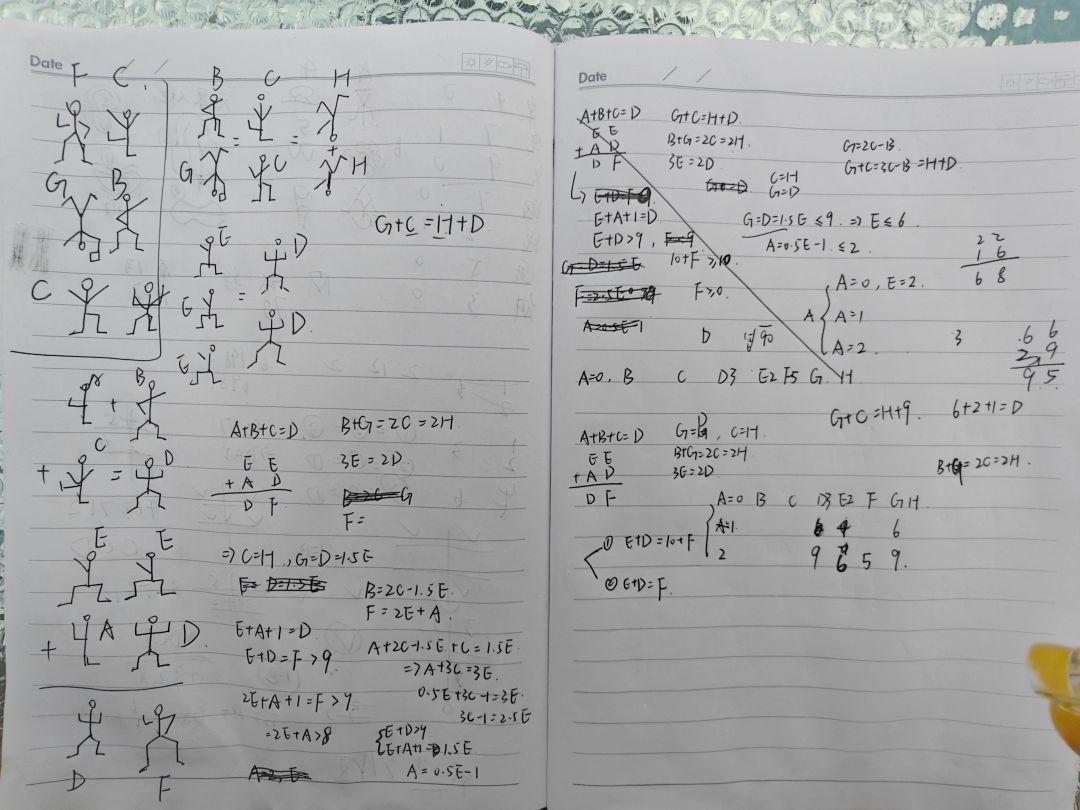 Date
F C
B C H
G B
G C H
C
E D
E D
E
G+C=H+D
B
+
C D
+ =
E E
+ A D
D F
A+B+C=D B+G=2C=2H
E E 3E=2D
+ A D
D F
F=
⇒C=H, G=D=1.5E
B=2C-1.5E
F=2E+A
E+A+1=D
E+D=F>9
A+2C-1.5E+C=1.5E
⇒A+3C=3E
2E+A+1=F>9
0.5E+3C-1=3E
=2E+A>8
3C-1=2.5E
E+D>9
A=0.5E-1
Date
A+B+C=D G+C=H+D
E E B+G=2C=2H
+ A D 3E=2D
D F
G=2C-B
G+C=3C-B=H+D
C=H
G=D
E+A+1=D
E+D>9,
G=D=1.5E≤9 ⇒ E≤6
A=0.5E-1≤2
10+F≥10
F≥0
2 2
1 6
6 8
A
A=0, E=2
A=1
A=2
D
3
6 6
2 9
9 5
A=0, B C D3 E2 F5 G H
G+C=H+9 6+2+1=D
A+B+C=D G=D, C=H
E E B+G=2C=2H
+ A D 3E=2D
D F
B+G=2C=2H
A=0 B C D3 E2 F G H
A=1 6 4 6
2 9 6 5 9
① E+D=10+F
② E+D=F